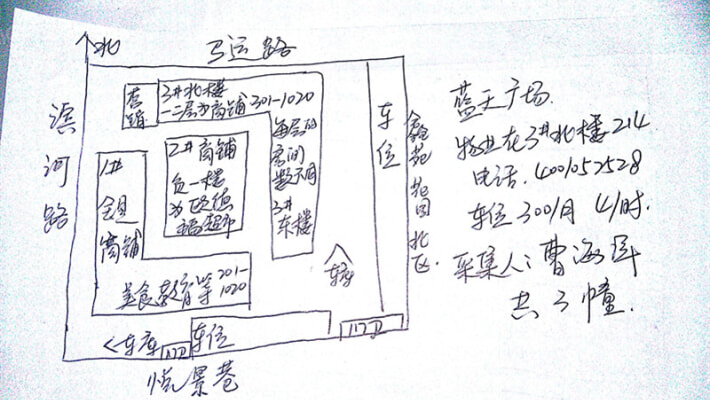 北
马运路
滨河路
商铺
3#北楼
一二层为商铺 301-1020
每层的
房间
数不同
3#
东楼
2#商铺
负一楼
为
超市
1#
全是
商铺
美食教育等 201-
1020
车位
花园北区
车库
<车库
门卫
车位
门卫
悦景巷
蓝天广场
物业在3#北楼214
电话. 4001052528
车位 300/月 4/时.
采集人: 曹海
共3幢.